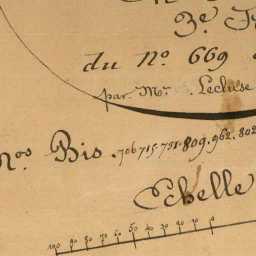 3e
du No. 669
par Mr. Lecluse
nos Bis. 706 715 751. 809. 962. 802
Echelle
100 90 80 70 60 50 40 30 20 10 0